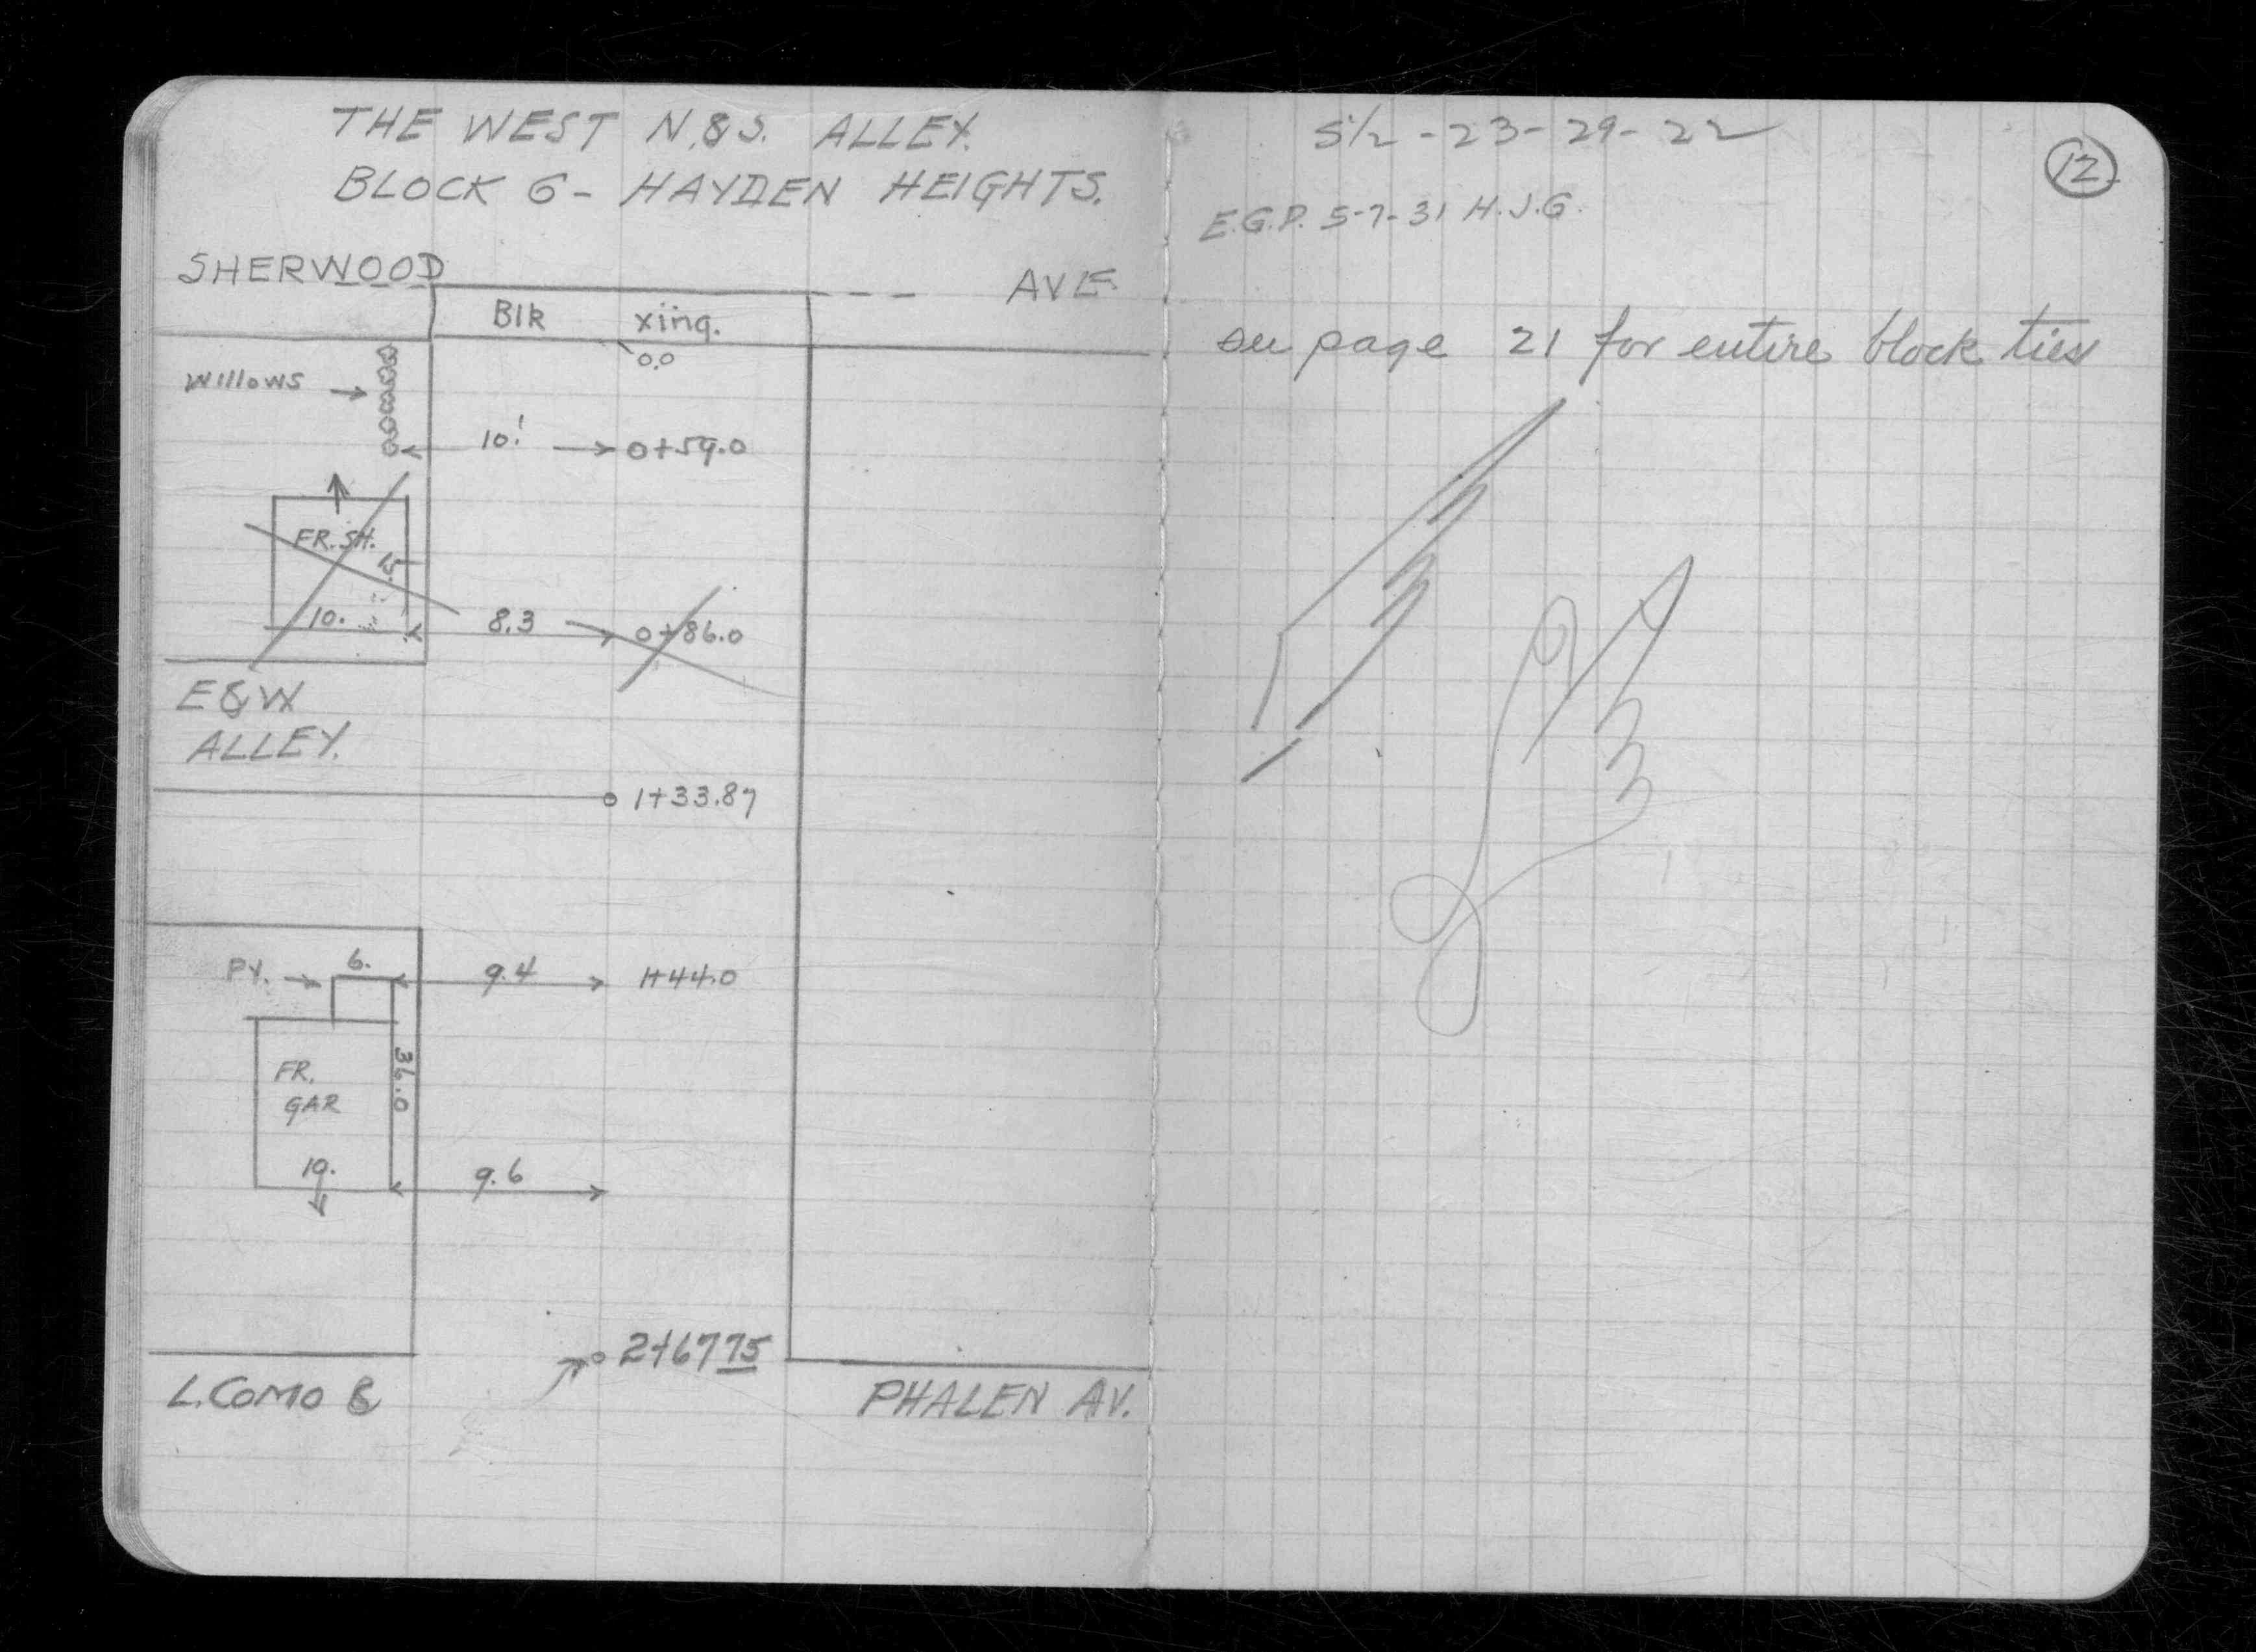 THE WEST N.&S. ALLEY.
BLOCK 6- HAYDEN HEIGHTS.
SHERWOOD --- AVE.
Blk xing.
0.0
Willows
10! 0+59.0
FR. SH.
15.
10. 8.3 0+86.0
E&W
ALLEY.
1+33.87
PY. 6. 9.4 1+44.0
FR.
GAR
36.0
19. 9.6
2+6775
L. COMO &
PHALEN AV.
S½ -23-29-22
12
E.G.P. 5-7-31 H.J.G.
see page 21 for entire block ties